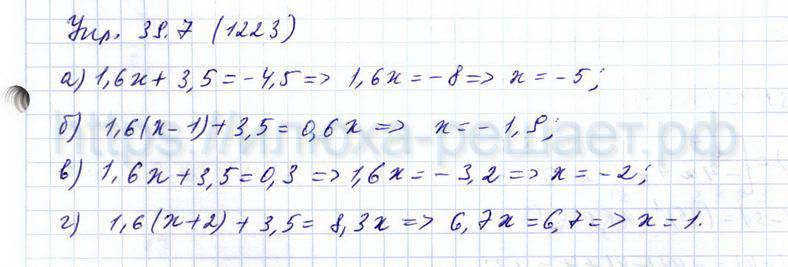 Упр. 39.7 (1223)
а) 1,6x + 3,5 = -4,5 => 1,6x = -8 => x = -5;
б) 1,6(x-1) + 3,5 = 0,6x => x = -1,9;
в) 1,6x + 3,5 = 0,3 => 1,6x = -3,2 => x = -2;
г) 1,6(x+2) + 3,5 = 8,3x => 6,7x = 6,7 => x = 1.